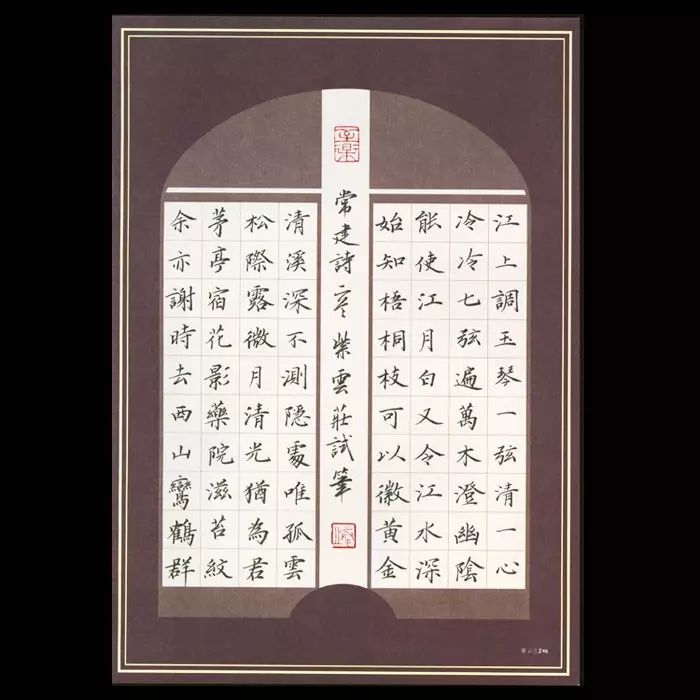 江上調玉琴一弦清一心
冷冷七弦遍萬木澄幽陰
能使江月白又令江水深
始知梧桐枝可以徽黃金
常建詩二首紫雲莊試筆
清溪深不測隱處唯孤雲
松際露微月清光猶為君
茅亭宿花影藥院滋苔紋
余亦謝時去西山鸞鶴群